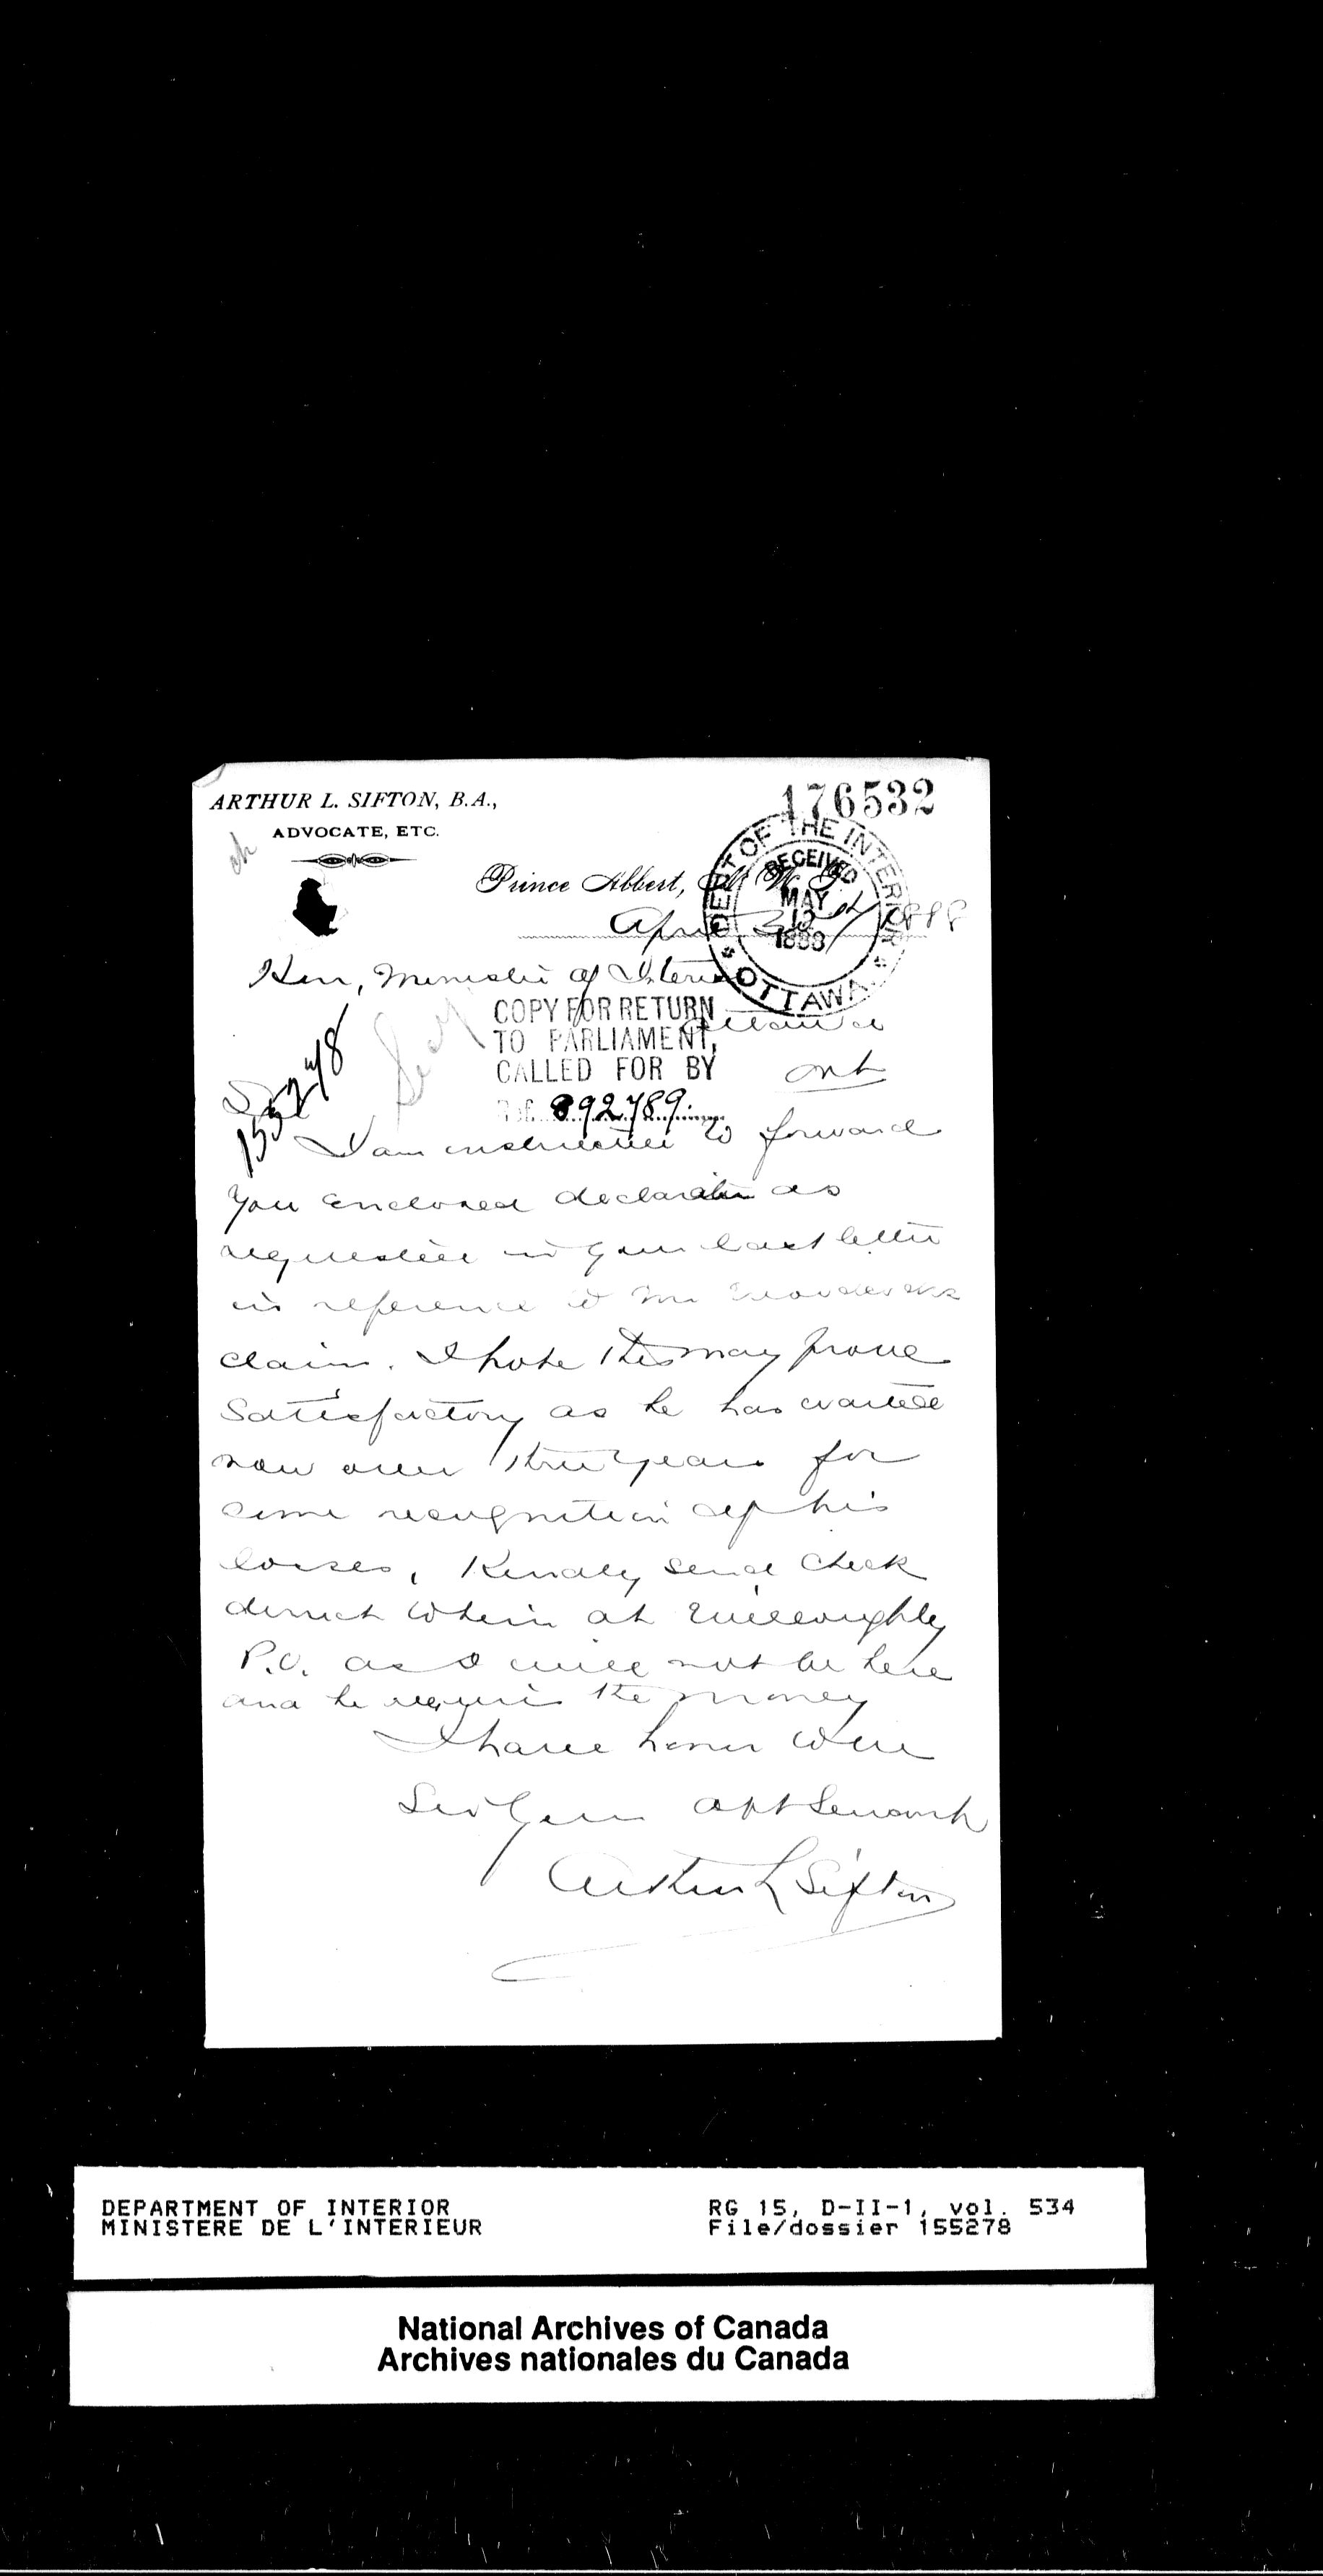 176532
ARTHUR L. SIFTON, B.A.,
ADVOCATE, ETC.
DEPT OF THE INTERIOR
RECEIVED
MAY
12
1888
OTTAWA
Prince Albert, N. W. T.
April 1888
Hon, Minister of Interior
COPY FOR RETURN
TO PARLIAMENT,
CALLED FOR BY
Ref. 892789
Ottawa
Ont
155278
I am instructed to forward
you enclosed declaration as
requested in your last letter
in reference to Mr
claim. I hope this may prove
satisfactory as he has waited
now over three years for
some recognition of his
losses, Kindly send check
direct to him at Willoughby
P.O. as I will not be here
and he requires the money
I have honor to be
Sir Your obt Servant
Arthur L Sifton
DEPARTMENT OF INTERIOR
MINISTERE DE L'INTERIEUR
RG 15, D-II-1, vol. 534
File/dossier 155278
National Archives of Canada
Archives nationales du Canada